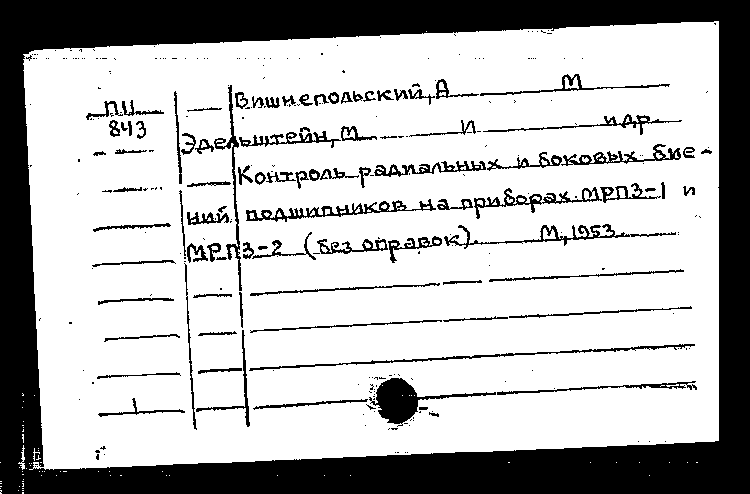 ПИ
843
Вишнепольский, А М
Эдельштейн, М И и др.
Контроль радиальных и боковых бие-
ний подшипников на приборах МРПЗ-1 и
МРПЗ-2 (без оправок). М., 1953.
1